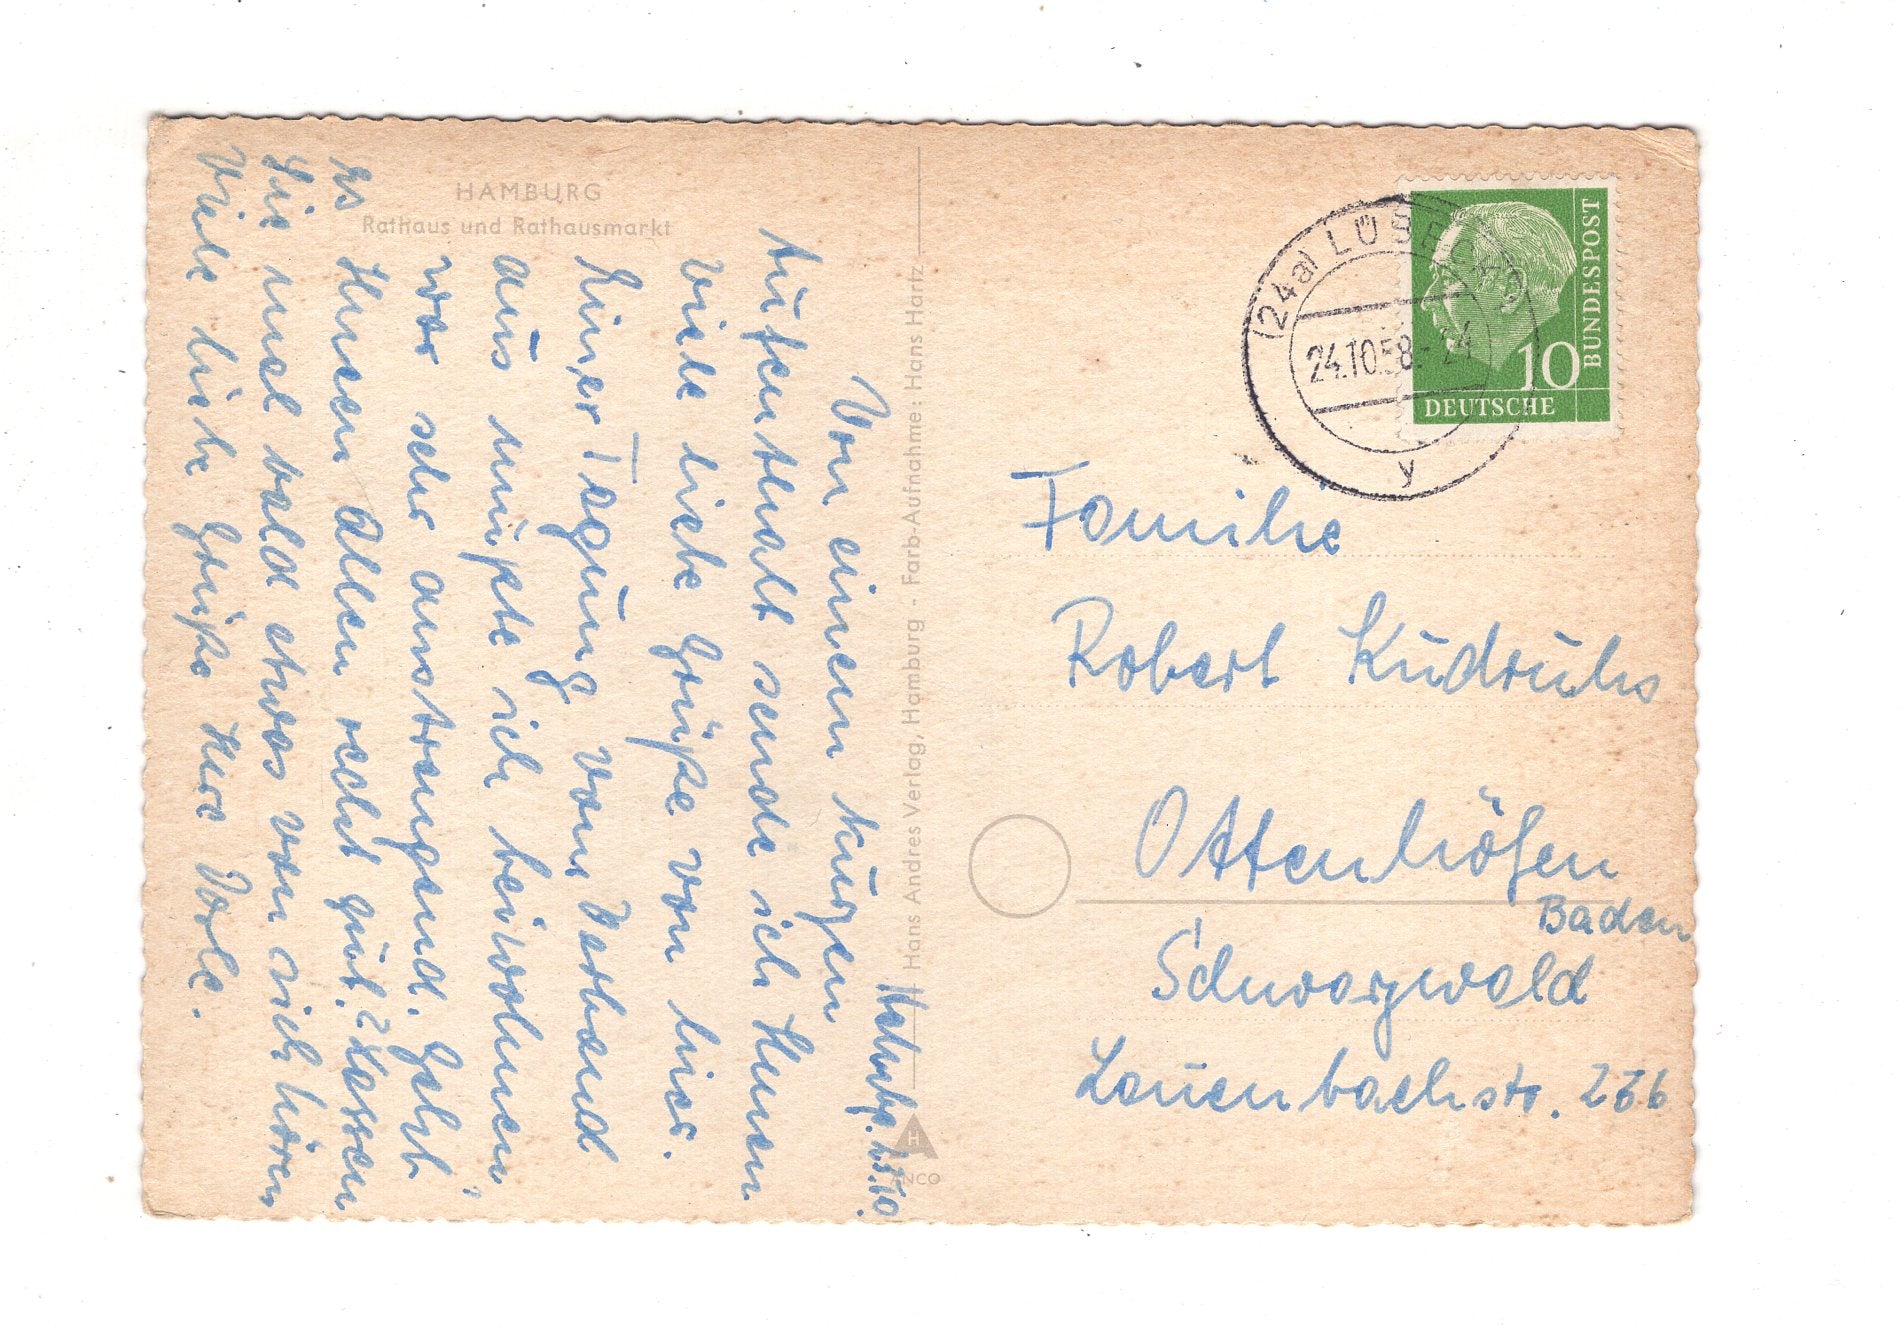 HAMBURG
Rathaus und Rathausmarkt
Hans Andres Verlag, Hamburg - Farb-Aufnahme: Hans Hartz
H
ANCO
Hambg.
Von einem kurzen
Aufenthalt sende ich Ihnen
viele liebe Grüße von hier.
Einer Tagung vom Verband
aus mußte ich beiwohnen
war sehr anstrengend. Geht
es Ihnen Allen recht gut? Lassen
Sie mal bald etwas von sich hören
Viele liebe Grüße Ihre
(24a) LÜBECK
24.10.58.-24
y
DEUTSCHE
BUNDESPOST
10
Familie
Robert
Ottenhöfen
Baden
Schwarzwald
Lauenbachstr. 236